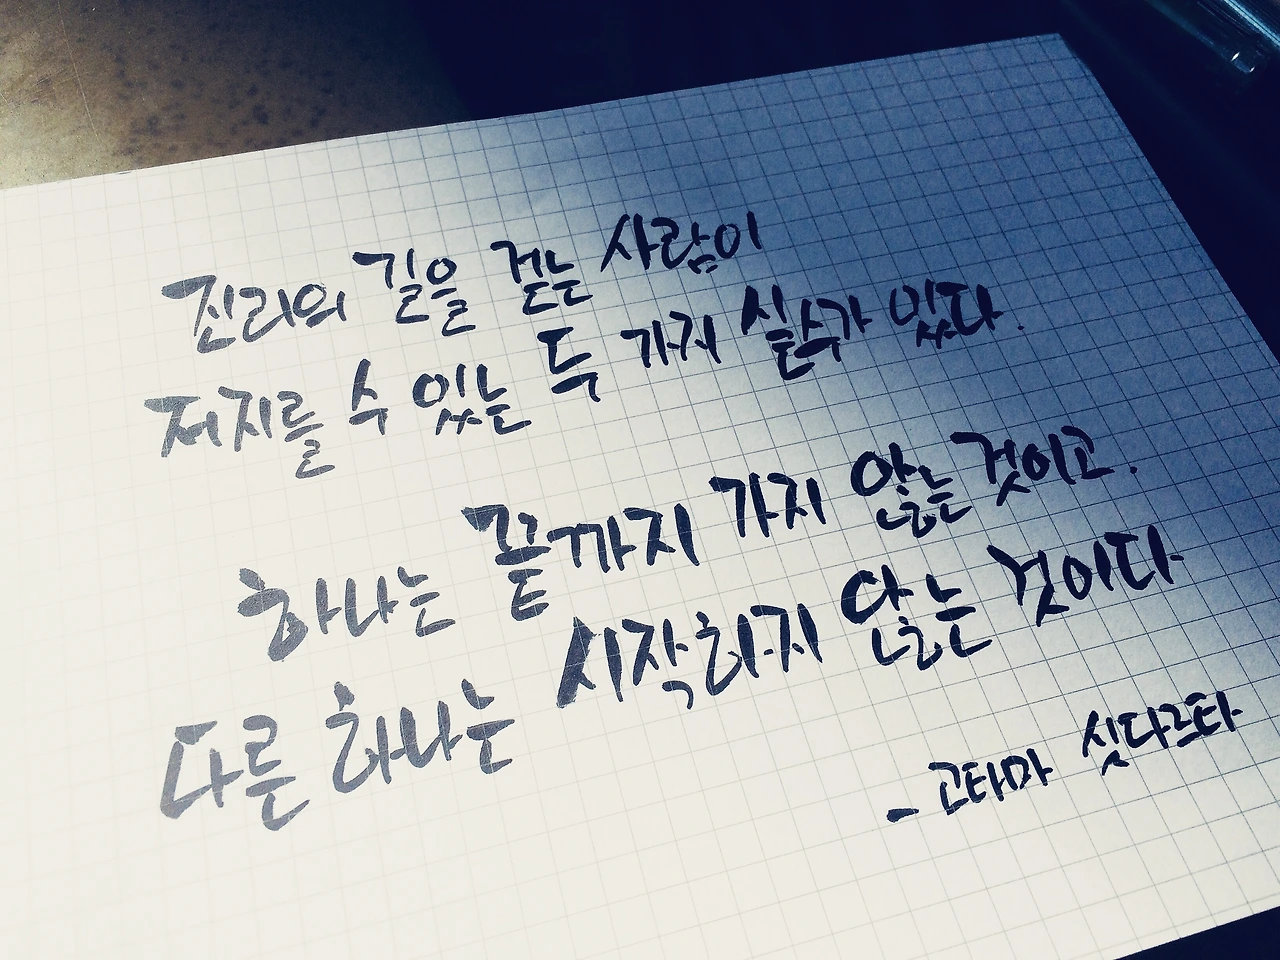 진리의 길을 걷는 사람이
저지를 수 있는 두 가지 실수가 있다.
하나는 끝까지 가지 않는 것이고.
다른 하나는 시작하지 않는 것이다
- 고타마 싯다르타